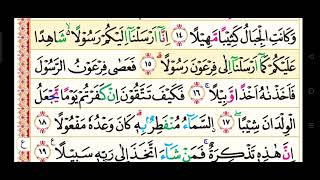 وَكَانَتِ الْجِبَالُ كَثِيْبًا مَّهِيْلًا ﴿۱۴﴾ اِنَّاۤ اَرْسَلْنَاۤ اِلَيْكُمْ رَسُوْلًا ۙ شَاهِدًا
عَلَيْكُمْ كَمَاۤ اَرْسَلْنَاۤ اِلٰى فِرْعَوْنَ رَسُوْلًا ﴿۱۵﴾ فَعَصٰى فِرْعَوْنُ الرَّسُوْلَ
فَاَخَذْنٰهُ اَخْذًا وَّبِيْلًا ﴿۱۶﴾ فَكَيْفَ تَتَّقُوْنَ اِنْ كَفَرْتُمْ يَوْمًا يَّجْعَلُ
الْوِلْدَانَ شِيْبًا ﴿۱۷﴾ السَّمَآءُ مُنْفَطِرٌۢ بِهٖ ؕ كَانَ وَعْدُهٗ مَفْعُوْلًا ﴿۱۸﴾
اِنَّ هٰذِهٖ تَذْكِرَةٌ ۚ فَمَنْ شَآءَ اتَّخَذَ اِلٰى رَبِّهٖ سَبِيْلًا ﴿۱۹﴾ ع